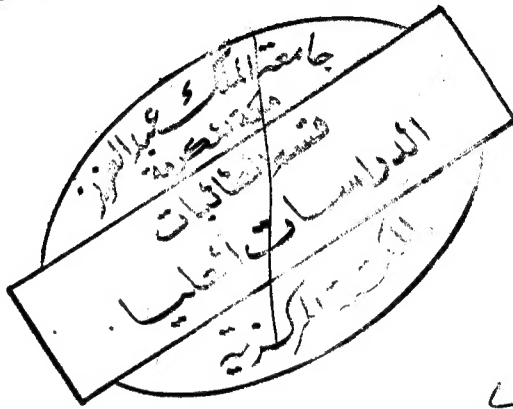 جامعة الملك عبدالعزيز
مكة المكرمة
قسم الطالبات
الدراسات العليا
المكتبة المركزية